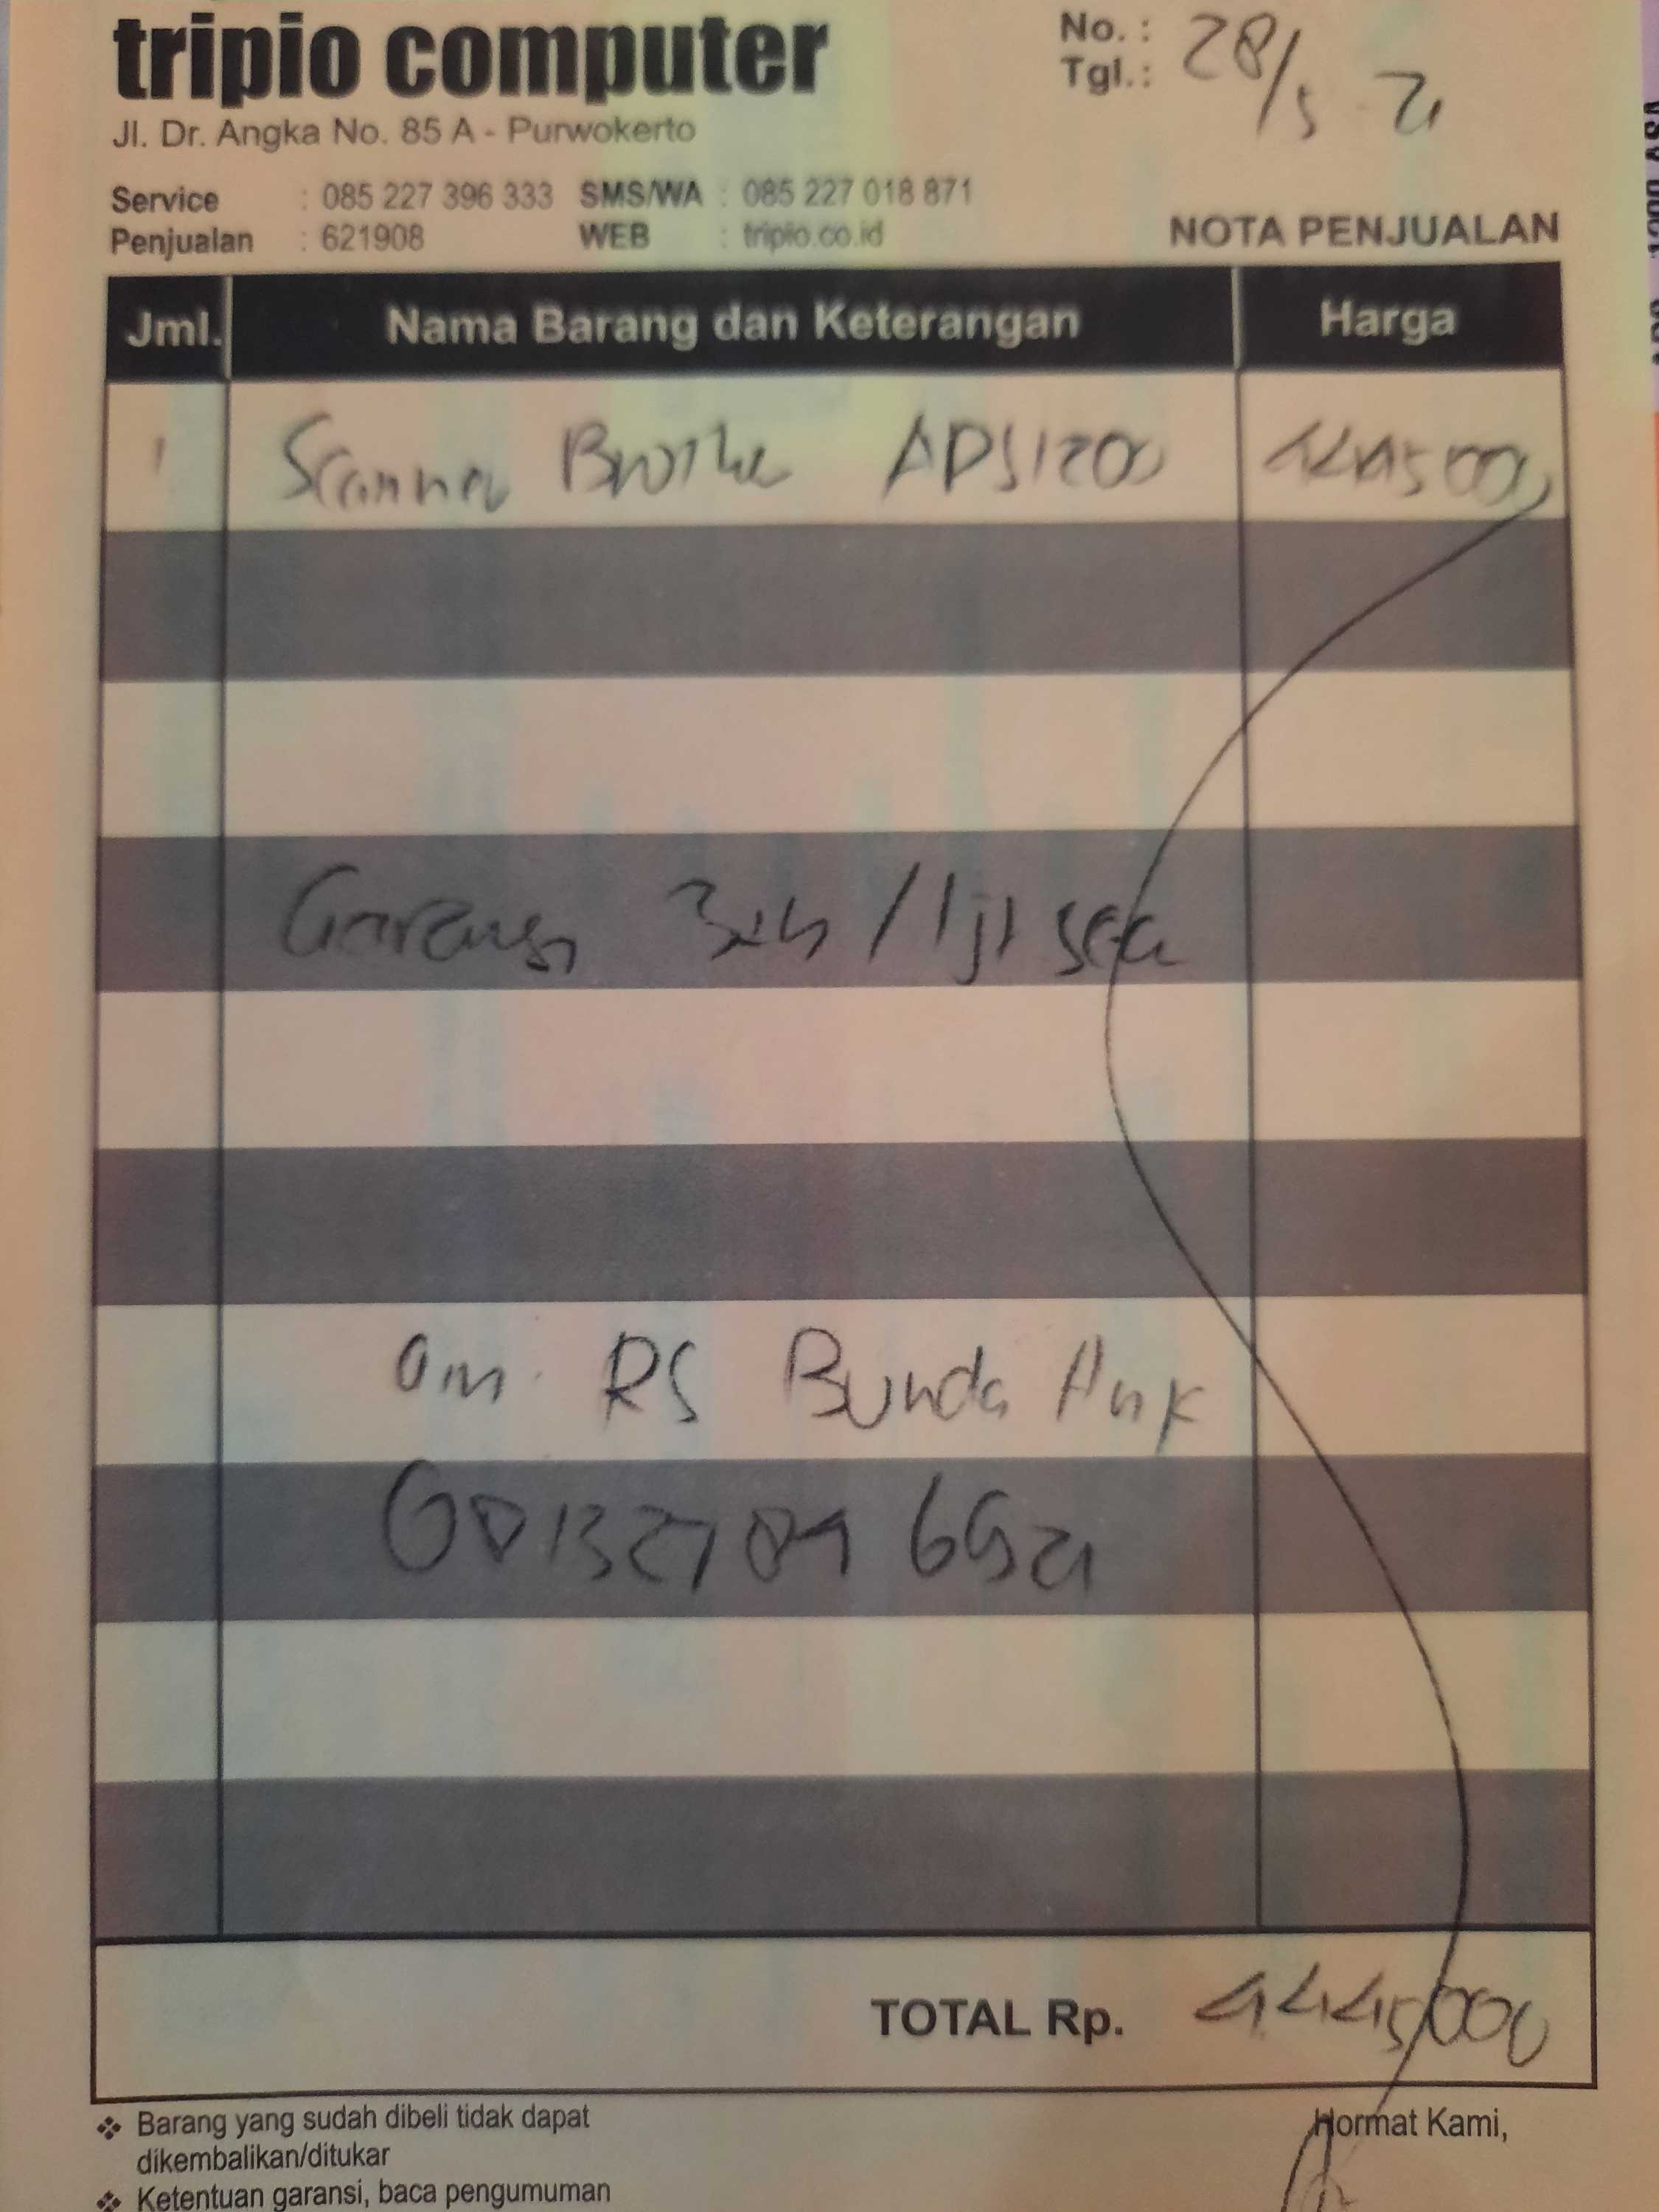 tripio computer
No. :
Tgl. : 28/5-21
Jl. Dr. Angka No. 85 A - Purwokerto
Service : 085 227 396 333 SMS/WA : 085 227 018 871
Penjualan : 621908 WEB : tripio.co.id
NOTA PENJUALAN
Jml. Nama Barang dan Keterangan Harga
1 Scanner Brother ADS1200 4445000
Garansi 3th /
an. RS Bunda
TOTAL Rp. 4445000
❖ Barang yang sudah dibeli tidak dapat
dikembalikan/ditukar
Hormat Kami,
❖ Ketentuan garansi, baca pengumuman